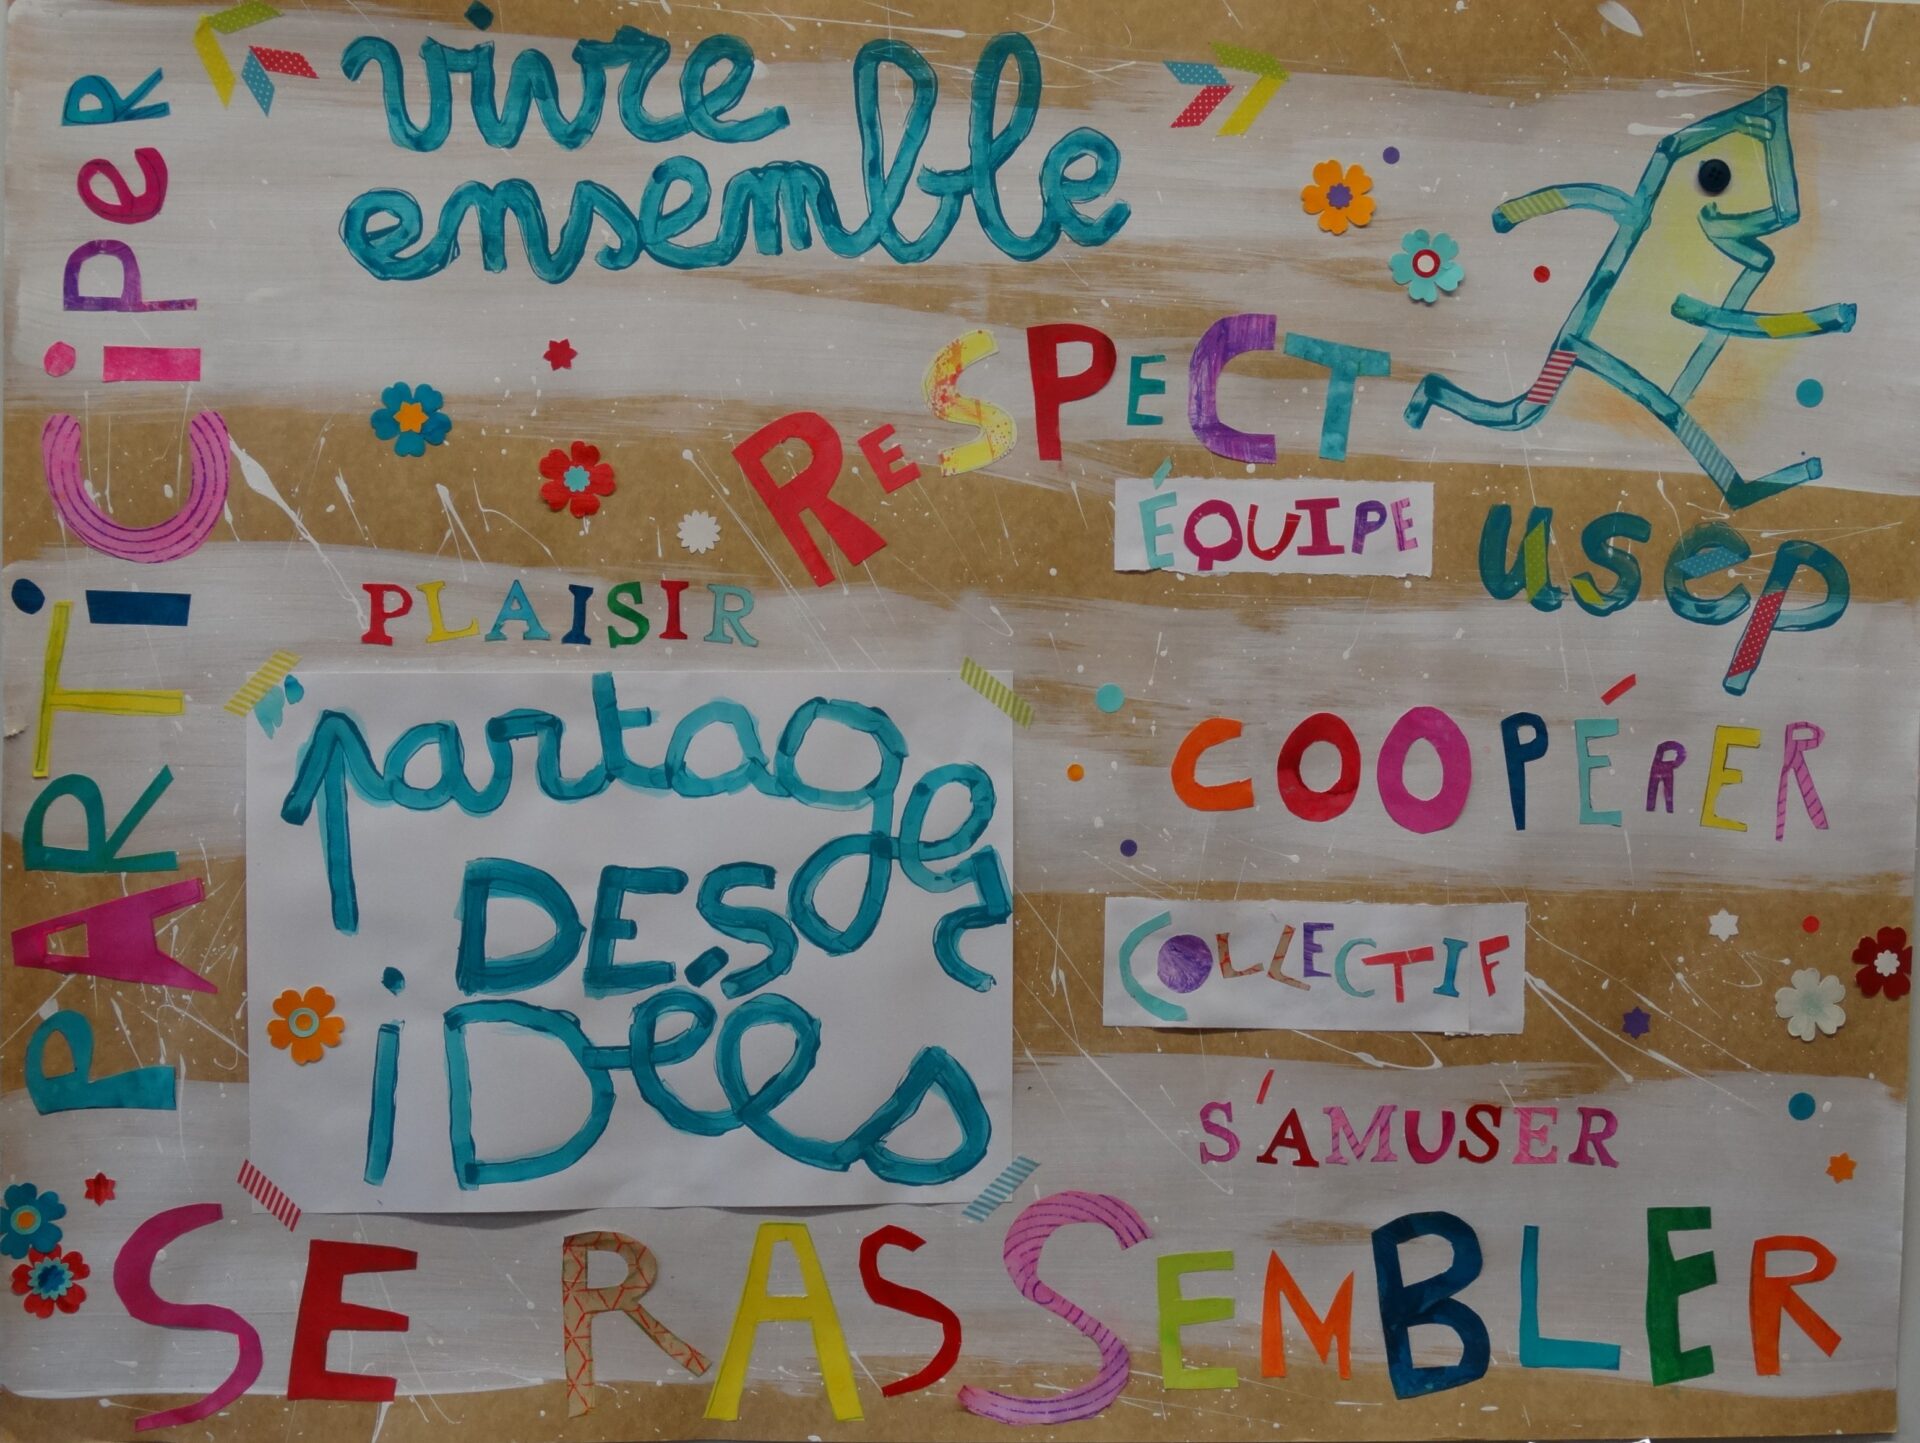 vivre
ensemble
PARTiCiPeR
ReSPECT
ÉQUIPE
usep
PLAISIR
partager
DES
iDées
COOPÉRER
COLLECTIF
S'AMUSER
SE RASSEMBLER